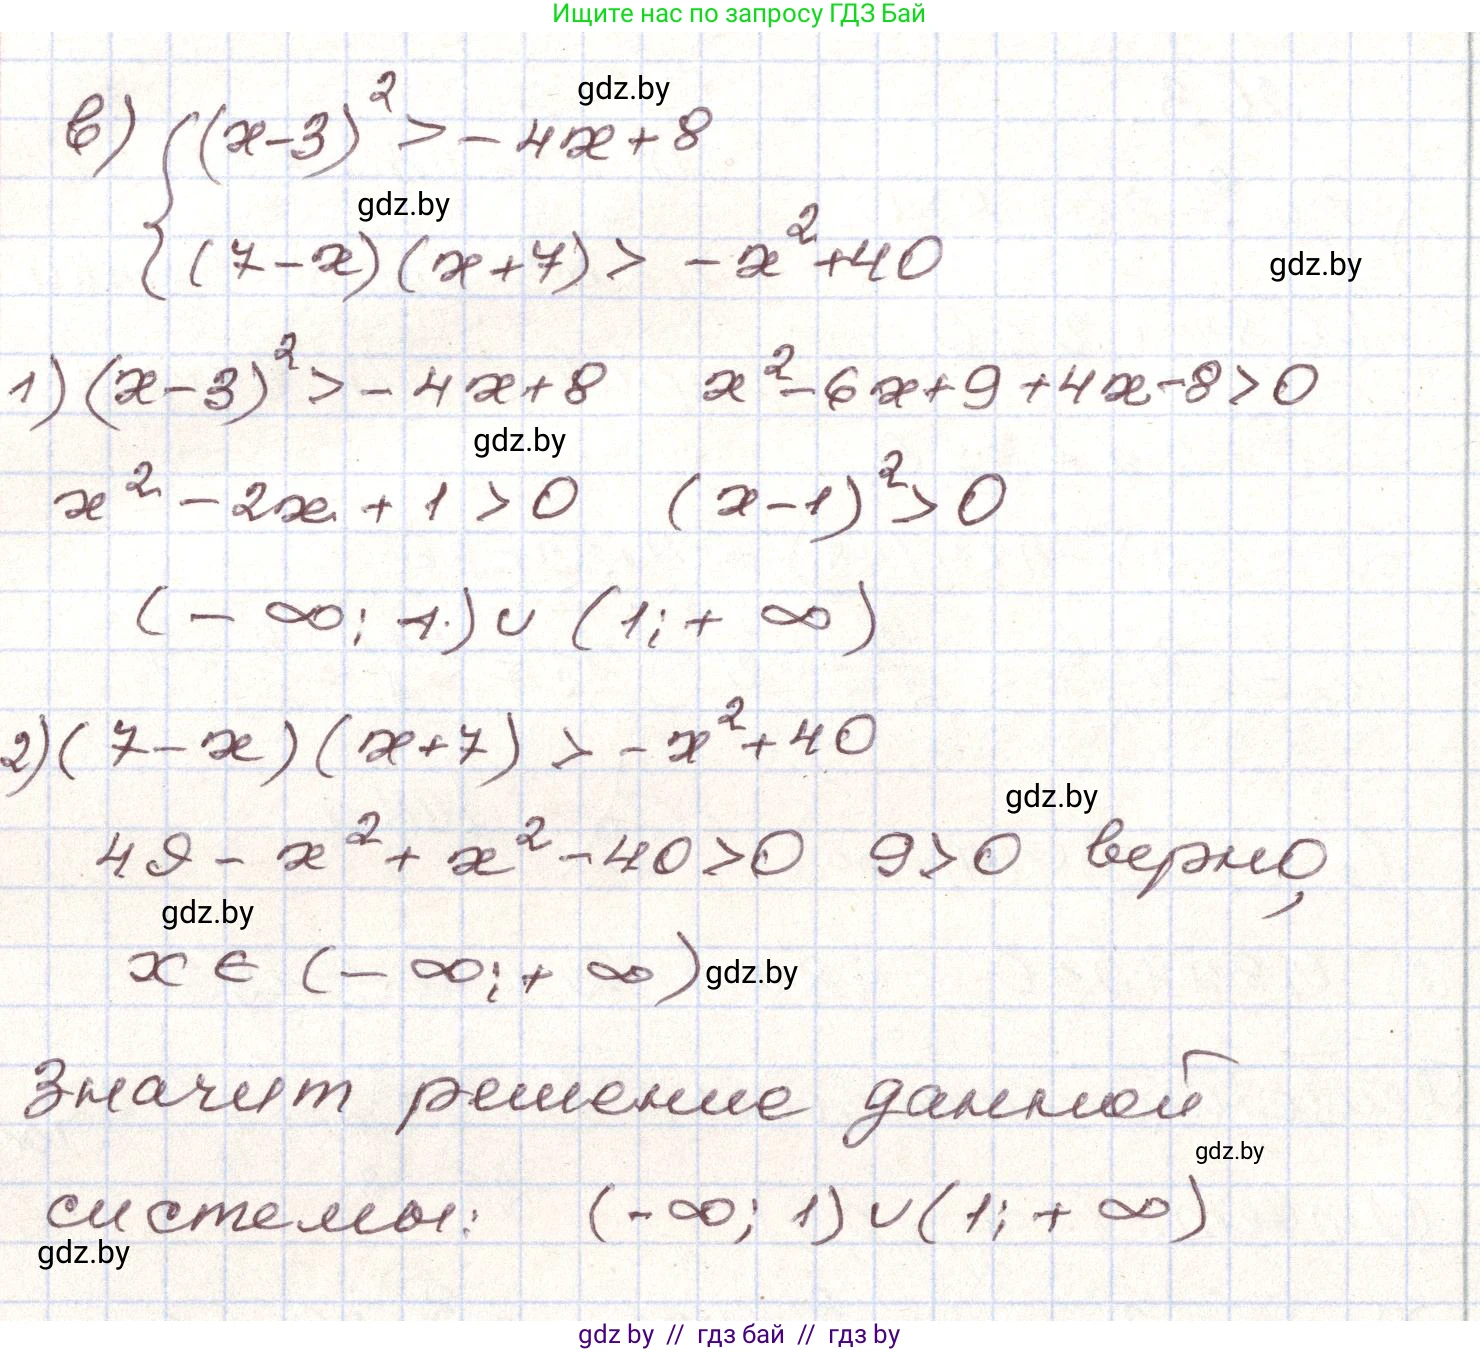 Ищите нас по запросу ГДЗ Бай
gdz.by
в) { (x-3)² > -4x+8
gdz.by
(7-x)(x+7) > -x²+40
gdz.by
1) (x-3)² > -4x+8 x²-6x+9+4x-8>0
gdz.by
x²-2x+1>0 (x-1)²>0
(-∞; 1) ∪ (1; +∞)
2) (7-x)(x+7) > -x²+40
gdz.by
49-x²+x²-40>0 9>0 верно,
gdz.by
x ∈ (-∞; +∞) gdz.by
Значит решение данной
gdz.by
системы: (-∞; 1) ∪ (1; +∞)
gdz.by
gdz by // гдз бай // гдз by